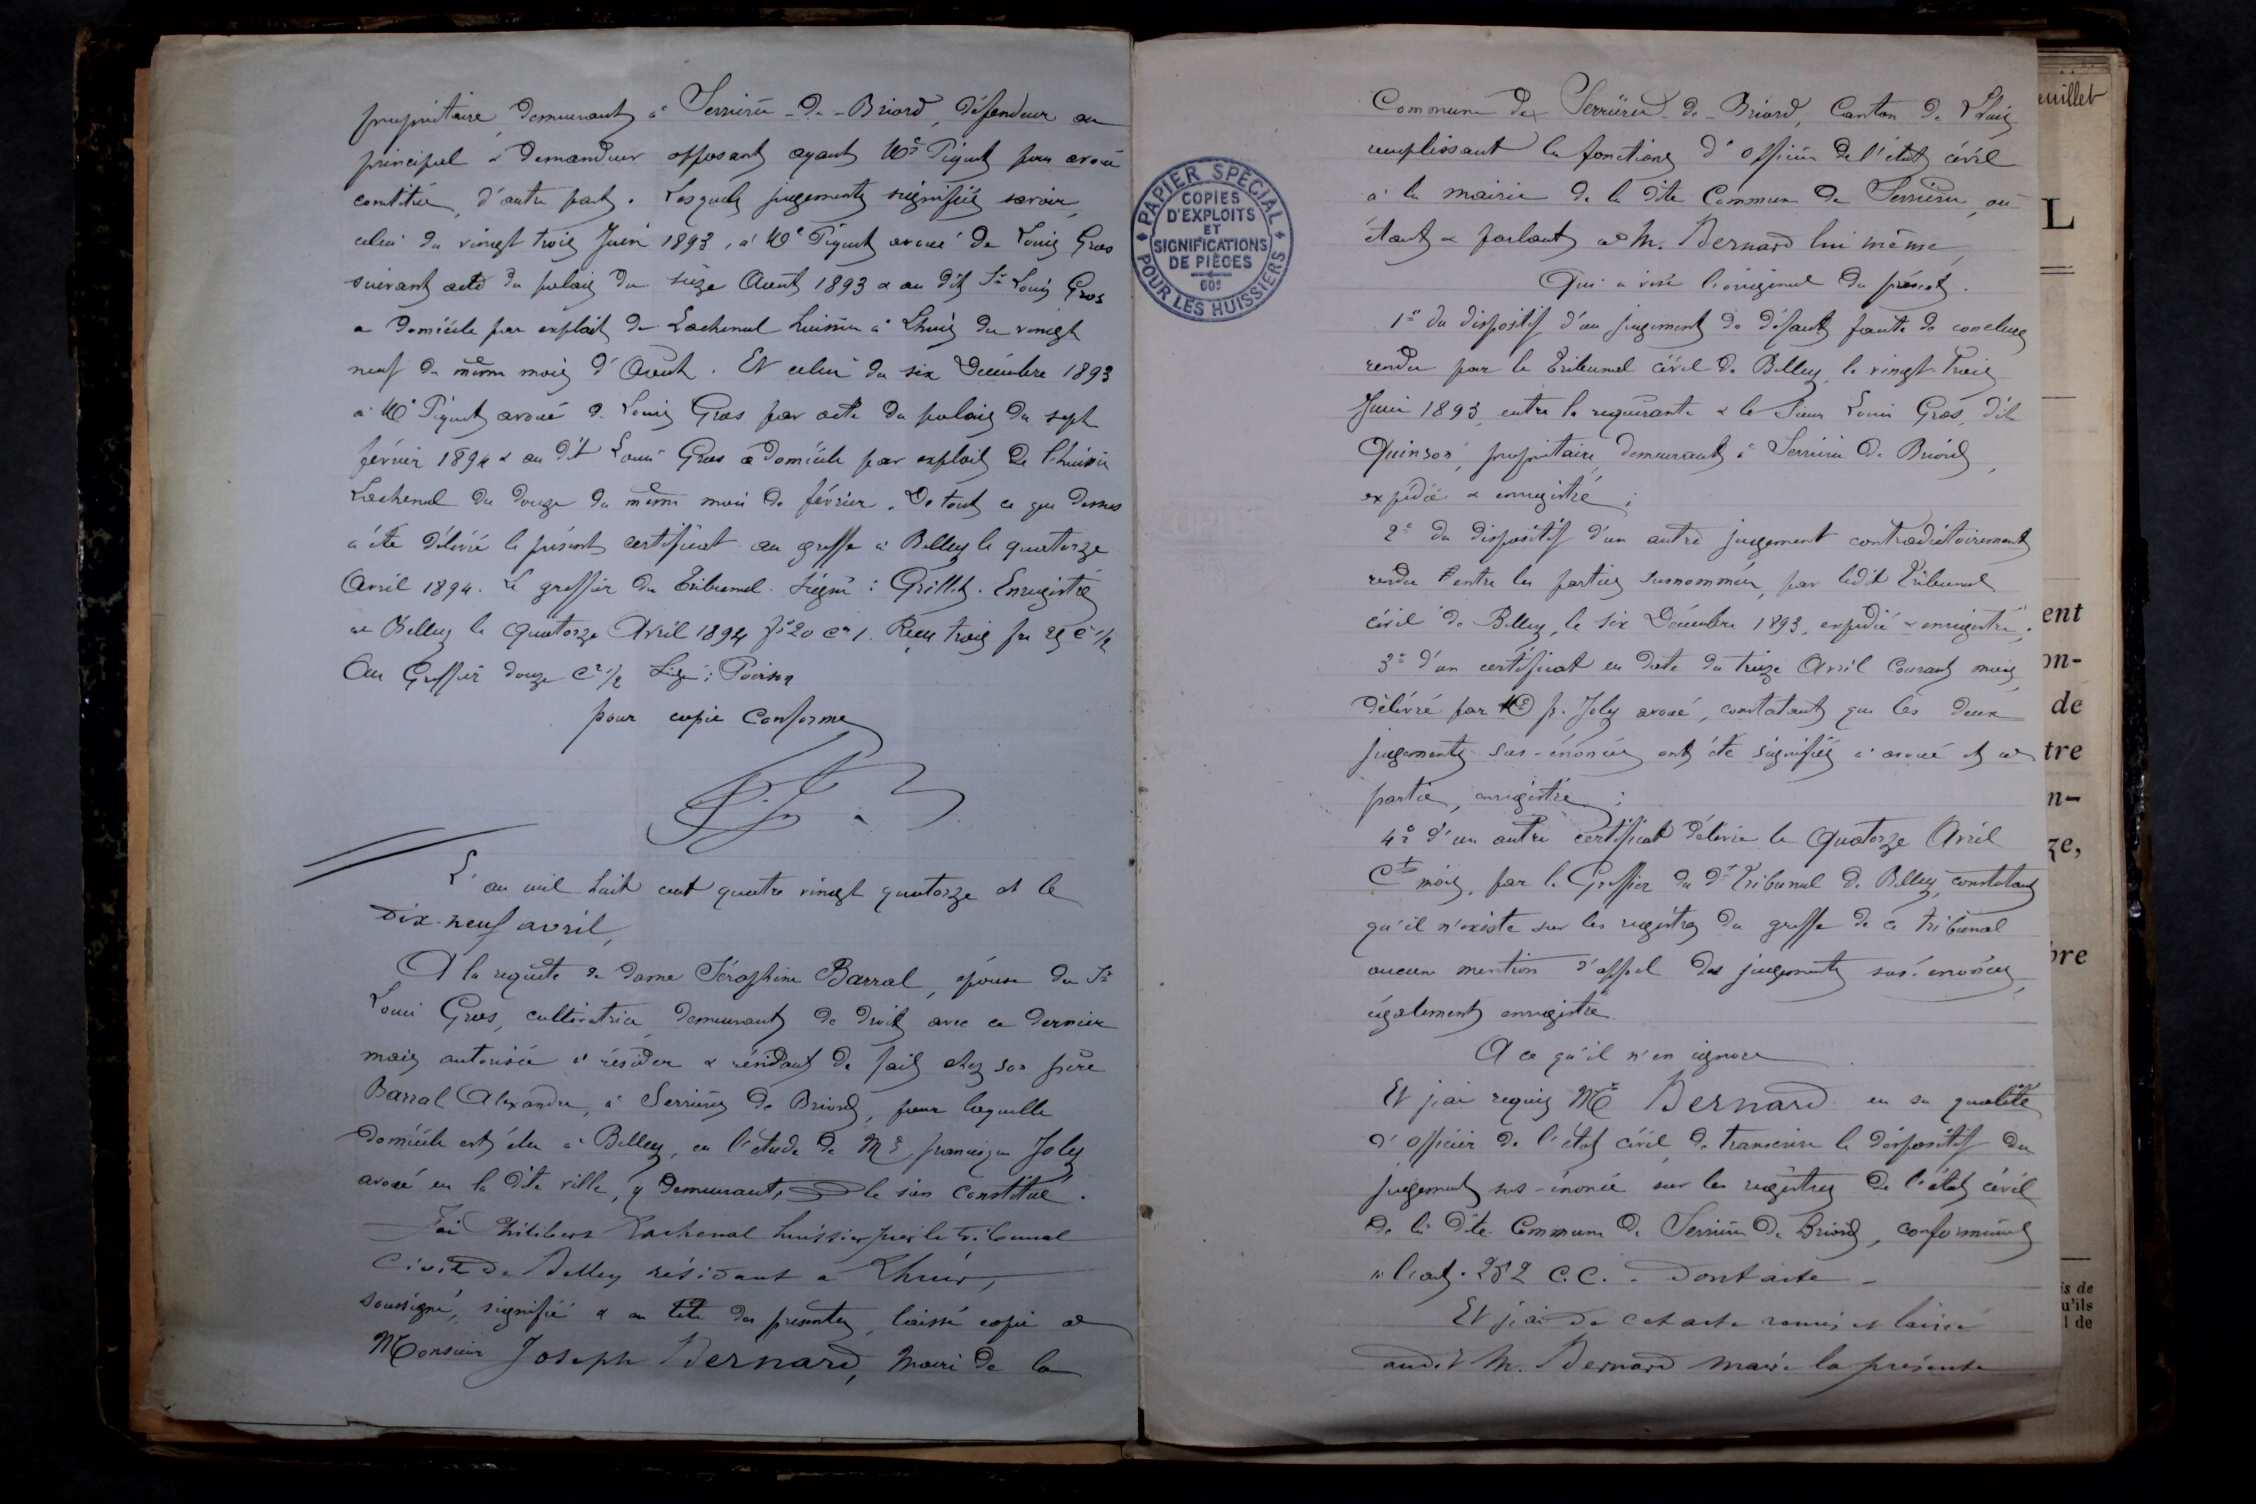 propriétaire demeurant à Serrières-de-Briord, défendeur au
principal & demandeur opposant ayant Me Piquet pour avoué
constitué, d'autre part. Lesquels jugements signifiés savoir,
celui du vingt trois Juin 1893, à Me Piquet avoué de Louis Gros
suivant acte du palais du seize Août 1893 & au dit Sr Louis Gros
a domicile par exploit de Lachenal huissier à Lhuis du vingt
neuf du même mois d'Août. Et celui du six Décembre 1893
à Me Piquet avoué de Louis Gros par acte du palais du sept
février 1894 & au dit Louis Gros à domicile par exploit de l'huissier
Lachenal du douze du même mois de février. De tout ce que dessus
a été délivré le présent certificat au greffe à Belley le quatorze
Avril 1894. Le greffier du Tribunal. Signé : Grillet. Enregistré
à Belley le quatorze Avril 1894 fo 20 Ce 1. Reçu trois fr 25 c 1/2
Au Greffier douze Ce 1/2 Signé :
pour copie conforme
L'an mil huit cent quatre vingt quatorze et le
Dix-neuf avril,
A la requête de dame Séraphine Barral, épouse du Sr
Louis Gros, cultivatrice, demeurant de droit avec ce dernier
mais autorisée à résider & résidant de fait chez son frère
Barral Alexandre, à Serrières de Briord, pour laquelle
domicile est élu à Belley, en l'étude de Me francisque Joly
avoué en la dite ville, y demeurant, le sien constitué.
J'ai Philibert Lachenal huissier près le tribunal
Civil de Belley résidant à Lhuis,
soussigné, signifié & en tête des présentes, laissé copie à
Monsieur Joseph Bernard, Maire de la
PAPIER SPÉCIAL
POUR LES HUISSIERS
COPIES
D'EXPLOITS
ET
SIGNIFICATIONS
DE PIÈCES
Commune de Serrières-de-Briord, Canton de Lhuis
remplissant les fonctions d'officier de l'état civil
à la mairie de la dite Commune de Serrières, où
étant & parlant à M. Bernard lui même,
Qui a visé l'original du présent.
1o du dispositif d'un jugement de défaut faute de conclure
rendu par le Tribunal civil de Belley, le vingt-trois
Juin 1893, entre la requérante & le Sieur Louis Gros, dit
Quinson, propriétaire demeurant à Serrières de Briord,
expédié & enregistré ;
2o du dispositif d'un autre jugement contradictoirement
rendu entre les parties susnommées, par ledit Tribunal
civil de Belley, le six Décembre 1893, expédié & enregistré ;
3o d'un certificat en date du treize Avril Courant mois,
délivré par Me f. Joly avoué, constatant que les deux
jugements sus-énoncés ont été signifiés à avoué et à
partie, enregistré ;
4o d'un autre certificat délivré le Quatorze Avril
Ct mois, par le Greffier du dt Tribunal de Belley, constatant
qu'il n'existe sur les registres du greffe de ce tribunal
aucune mention d'appel des jugements sus-énoncés,
également enregistré.
A ce qu'il n'en ignore
Et j'ai requis Mr Bernard en sa qualité
d'officier de l'état civil, de transcrire le dispositif du
jugement sus-énoncé sur les registres de l'état civil
de la dite Commune de Serrières de Briord, conformément
à l'art. 252 C.C. - Dont acte -
Et j'ai de cet acte remis et laissé
audit M. Bernard maire la présente
euillet
L
ent
on-
de
tre
n-
ze,
bre
is de
u'ils
l de